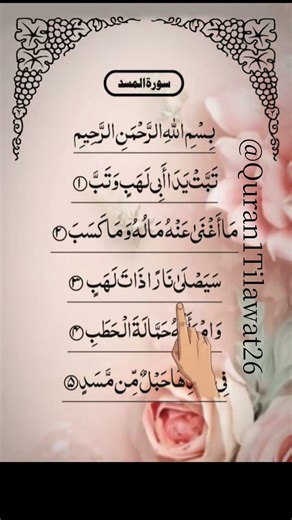 سورة المسد
بِسْمِ اللهِ الرَّحْمَنِ الرَّحِيْمِ
تَبَّتْ يَدَا أَبِي لَهَبٍ وَتَبَّ ۝١
مَا أَغْنَىٰ عَنْهُ مَالُهُ وَمَا كَسَبَ ۝٢
سَيَصْلَىٰ نَارًا ذَاتَ لَهَبٍ ۝٣
حَمَّالَةَ الْحَطَبِ ۝٤
حَبْلٌ مِّن مَّسَدٍ ۝٥
@Quran1Tilawat26